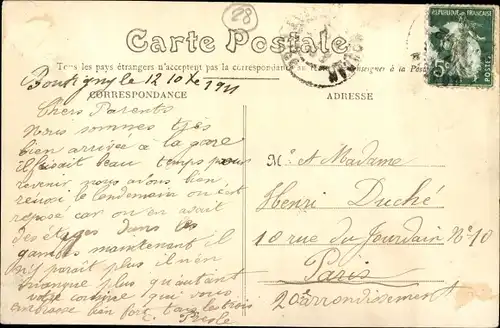 28
Carte Postale
Tous les pays étrangers n'acceptent pas la correspondance au
enseigner à la Poste
RÉPUBLIQUE FRANÇAISE
5c
POSTES
Pontigny le 12 10 1911
CORRESPONDANCE
ADRESSE
Chers Parents
Nous sommes très
bien arrivée à la gare
il faisait beau temps pour
revenir nous avons bien
le lendemain on s'est
reposé car on en avait
des étages dans les
gambes maintenant il
n'y paraît plus il n'en
manque plus qu'autant
votre cousine qui vous
embrasse bien fort tous les trois
M. et Madame
Henri Duché
10 rue du Jourdain N° 10
Paris
20e arrondissement